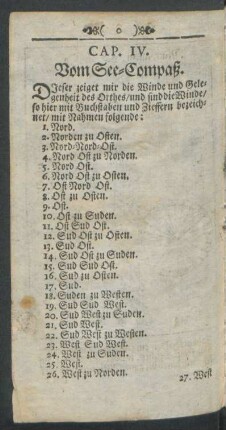 ( o )
CAP. IV.
Vom See-Compaß.
DJeser zeiget mir die Winde und Gele-
genheit des Orthes/ und sind die Winde/
so hier mit Buchstaben und Zieffern bezeich-
net/ mit Nahmen folgende:
1. Nord.
2. Norden zu Osten.
3. Nord-Nord-Ost.
4. Nord Ost zu Norden.
5. Nord Ost.
6. Nord Ost zu Osten.
7. Ost Nord Ost.
8. Ost zu Osten.
9. Ost.
10. Ost zu Suden.
11. Ost Sud Ost.
12. Sud Ost zu Osten.
13. Sud Ost.
14. Sud Ost zu Suden.
15. Sud Sud Ost.
16. Sud zu Osten.
17. Sud.
18. Suden zu Westen.
19. Sud Sud West.
20. Sud West zu Suden.
21. Sud West.
22. Sud West zu Westen.
23. West Sud West.
24. West zu Suden.
25. West.
26. West zu Norden.
27. West